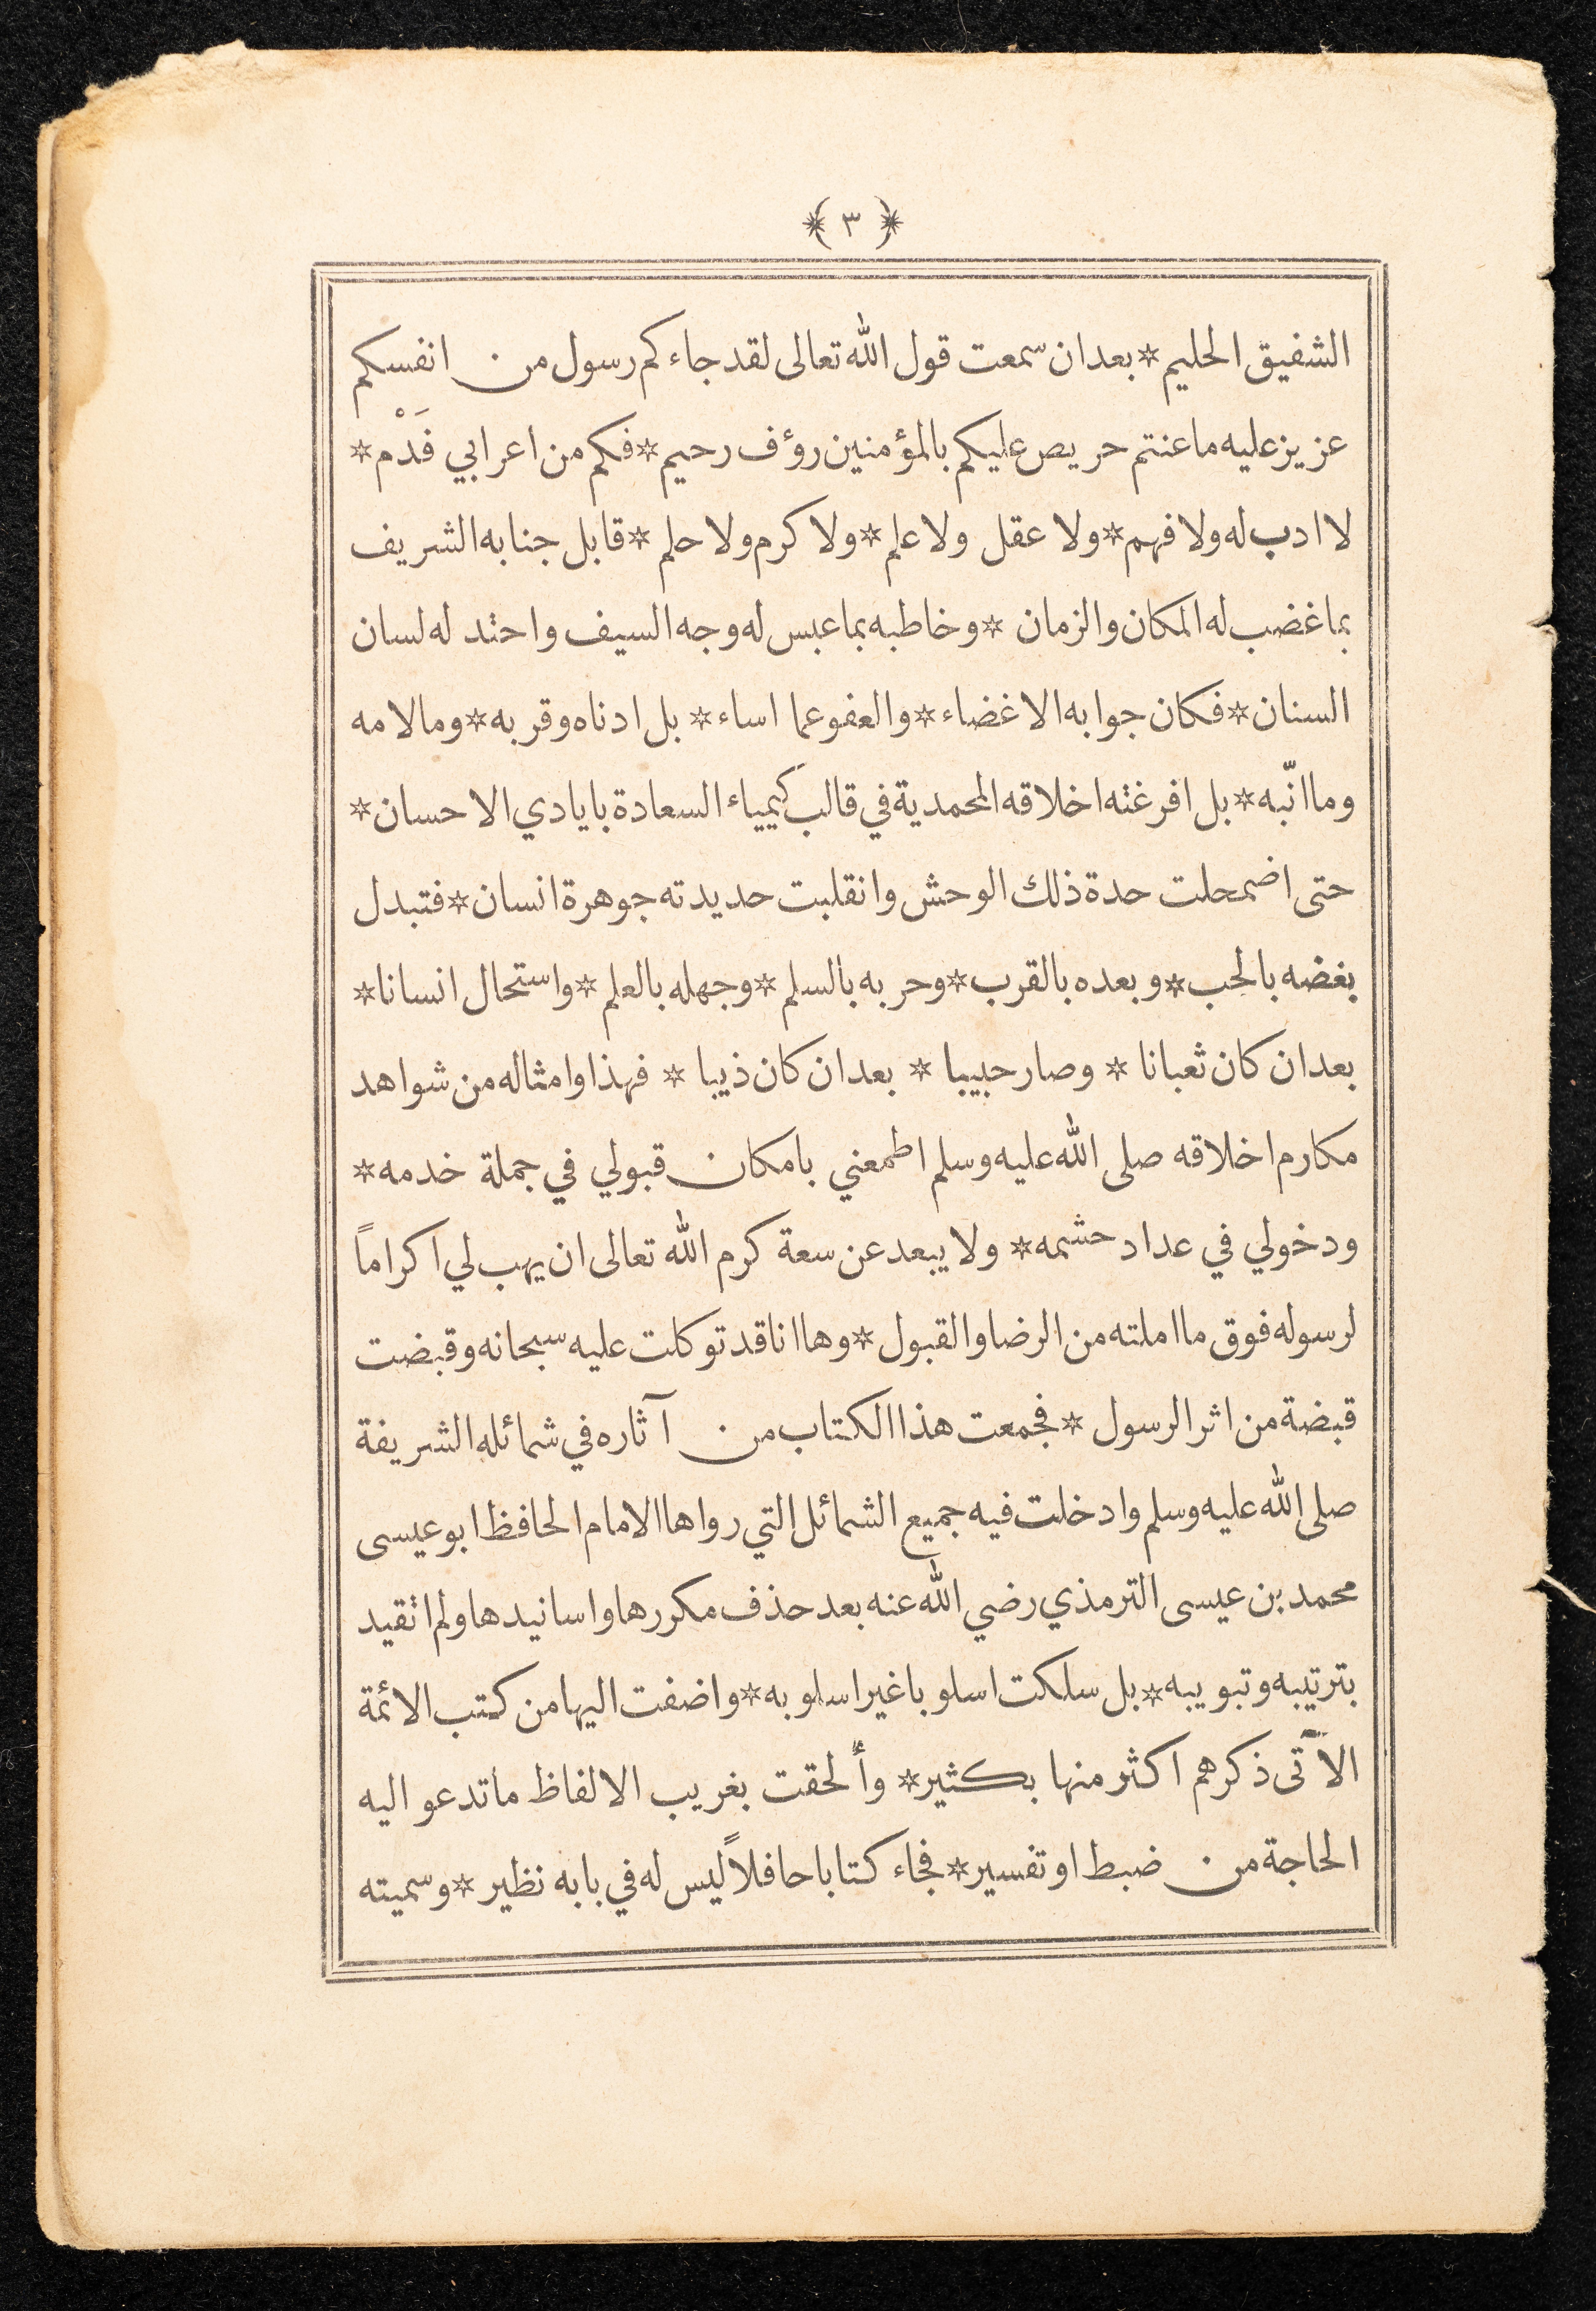 ﴿ ٣ ﴾
الشفيق الحليم * بعد ان سمعت قول الله تعالى لقد جاءكم رسول من انفسكم
عزيز عليه ما عنتم حريص عليكم بالمؤمنين رؤف رحيم * فكم من اعرابي فَدْم *
لا ادب له ولا فهم * ولا عقل ولا علم * ولا كرم ولا حلم * قابل جنابه الشريف
بما غضب له المكان والزمان * وخاطبه بما عبس له وجه السيف واحتد له لسان
السنان * فكان جوابه الاغضاء * والعفو عما اساء * بل ادناه وقربه * وما لامه
وما انّبه * بل افرغته اخلاقه المحمدية في قالب كيمياء السعادة بايادي الاحسان *
حتى اضمحلت حدة ذلك الوحش وانقلبت حديدته جوهرة انسان * فتبدل
بغضه بالحب * وبعده بالقرب * وحربه بالسلم * وجهله بالعلم * واستحال انسانا *
بعد ان كان ثعبانا * وصار حبيبا * بعد ان كان ذيبا * فهذا وامثاله من شواهد
مكارم اخلاقه صلى الله عليه وسلم اطمعني بامكان قبولي في جملة خدمه *
ودخولي في عداد حشمه * ولا يبعد عن سعة كرم الله تعالى ان يهب لي اكراماً
لرسوله فوق ما املته من الرضا والقبول * وها انا قد توكلت عليه سبحانه وقبضت
قبضة من اثر الرسول * فجمعت هذا الكتاب من آثاره في شمائله الشريفة
صلى الله عليه وسلم وادخلت فيه جميع الشمائل التي رواها الامام الحافظ ابو عيسى
محمد بن عيسى الترمذي رضي الله عنه بعد حذف مكررها واسانيدها ولم اتقيد
بترتيبه وتبويبه * بل سلكت اسلوبا غير اسلوبه * واضفت اليها من كتب الائمة
الآتى ذكرهم اكثر منها بكثير * وألحقت بغريب الالفاظ ما تدعو اليه
الحاجة من ضبط او تفسير * فجاء كتابا حافلاً ليس له في بابه نظير * وسميته